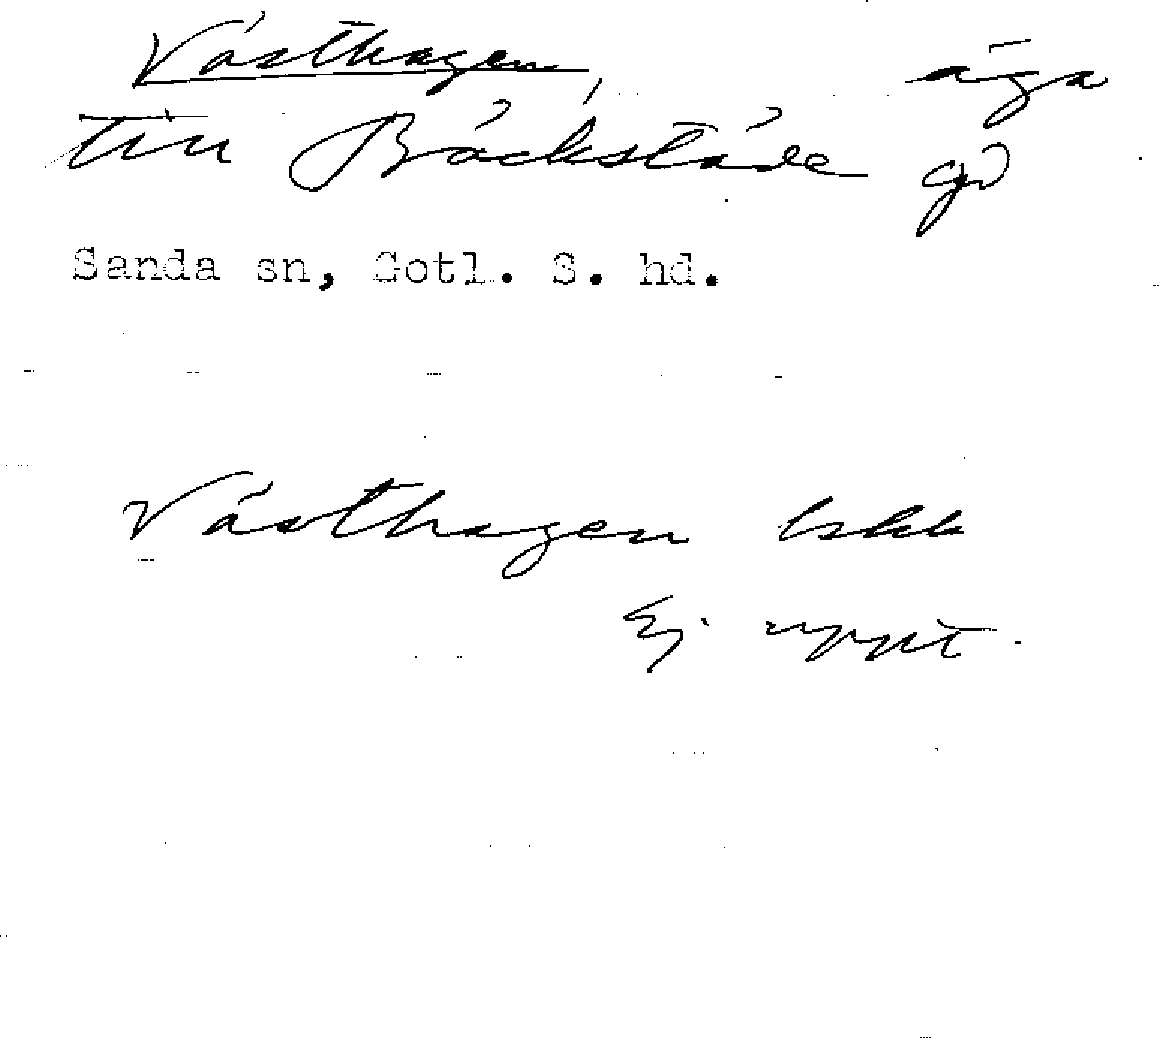 Västhagen, äga
till Bäckstäde gd
Sanda sn, Gotl. S. hd.
Västhagen bskk
Ej uppt.